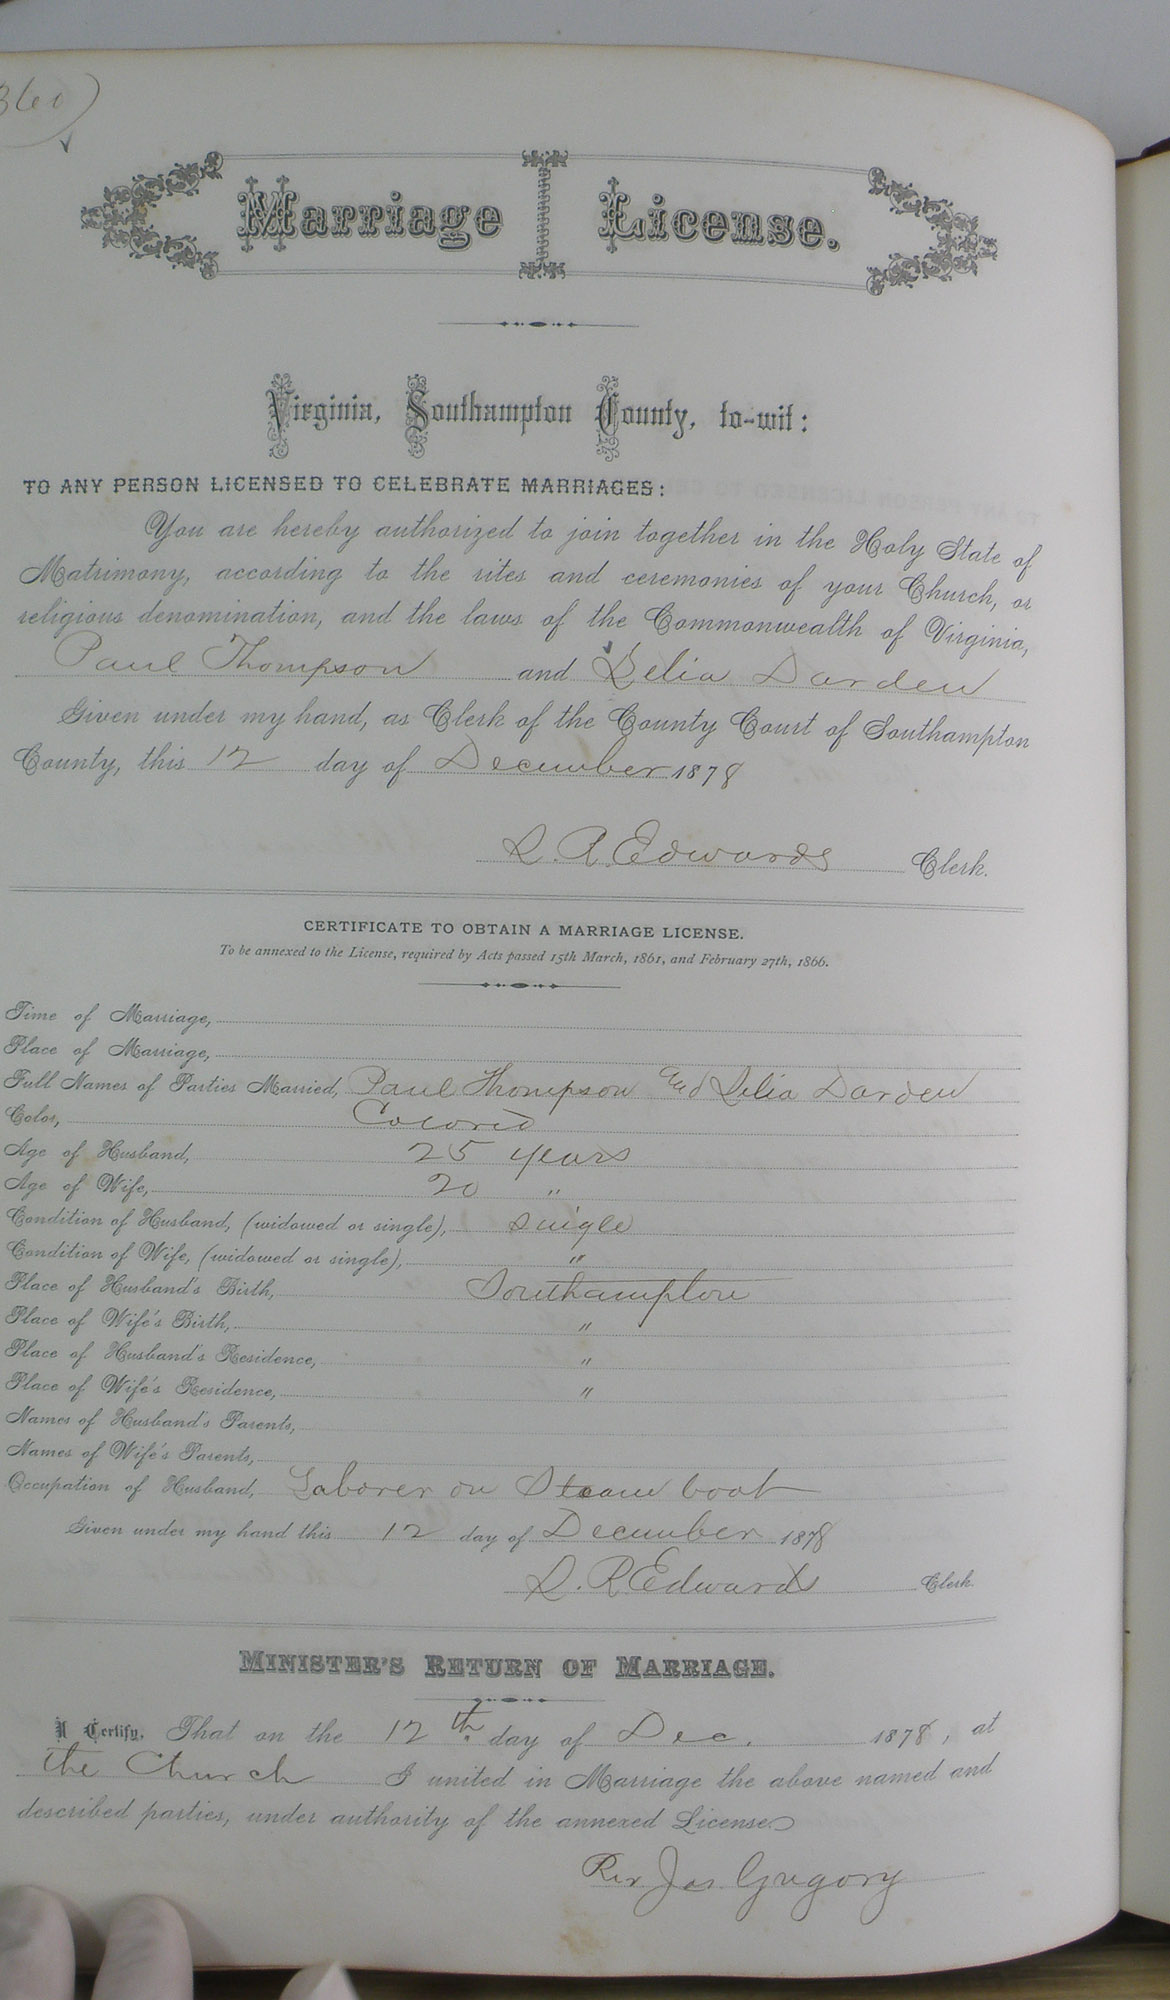 Marriage License.
Virginia, Southampton County, to-wit:
TO ANY PERSON LICENSED TO CELEBRATE MARRIAGES:
You are hereby authorized to join together in the Holy State of
Matrimony, according to the rites and ceremonies of your Church, or
religious denomination, and the laws of the Commonwealth of Virginia,
Paul Thompson and Delia Darden
Given under my hand, as Clerk of the County Court of Southampton
County, this 12 day of December 1878
L. R. Edwards Clerk.
CERTIFICATE TO OBTAIN A MARRIAGE LICENSE.
To be annexed to the License, required by Acts passed 15th March, 1861, and February 27th, 1866.
Time of Marriage,
Place of Marriage,
Full Names of Parties Married, Paul Thompson and Delia Darden
Color, Colored
Age of Husband, 25 years
Age of Wife, 20 "
Condition of Husband, (widowed or single), single
Condition of Wife, (widowed or single), "
Place of Husband's Birth, Southampton
Place of Wife's Birth, "
Place of Husband's Residence, "
Place of Wife's Residence, "
Names of Husband's Parents,
Names of Wife's Parents,
Occupation of Husband, Laborer on Steam boat
Given under my hand this 12 day of December 1878
L. R. Edwards Clerk.
MINISTER'S RETURN OF MARRIAGE.
I Certify, That on the 12th day of Dec. 1878, at
the Church I united in Marriage the above named and
described parties, under authority of the annexed License
Rev Jas Gregory